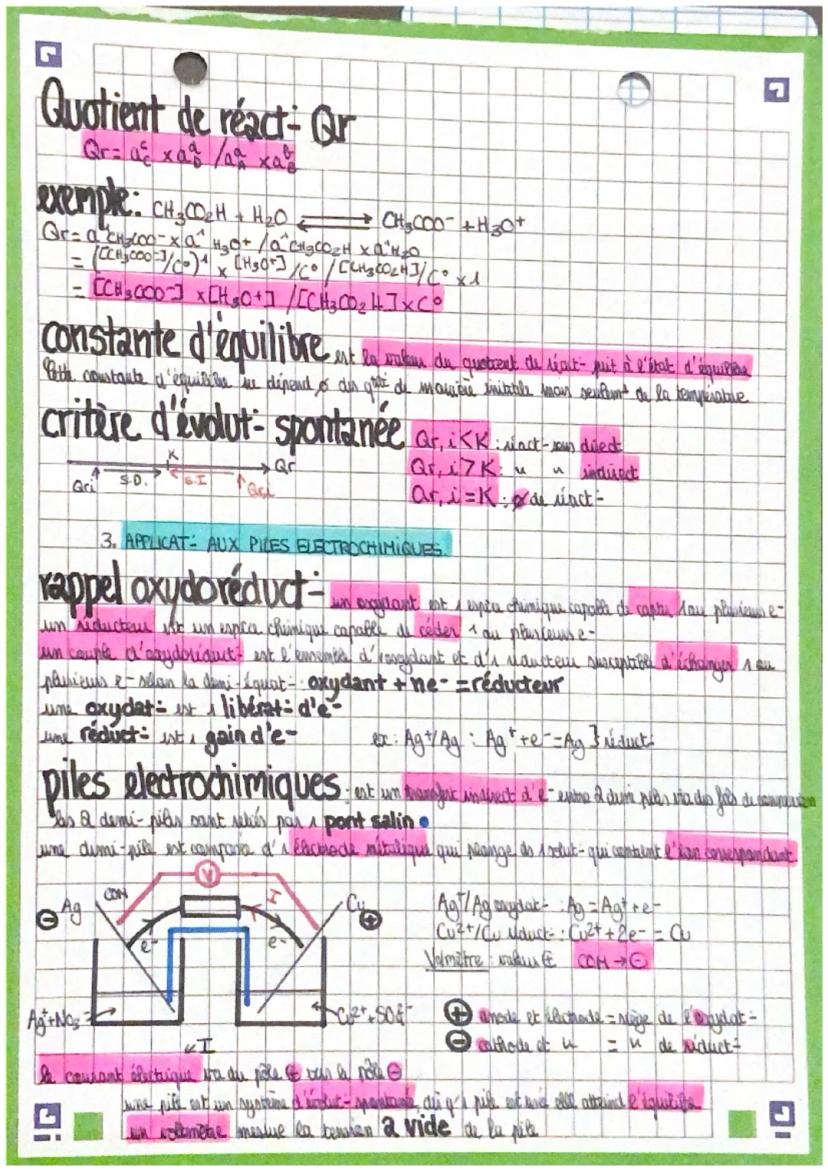 Quotient de réact- Qr
Qr = a^c_C × a^d_D / a^a_A × a^b_B
exemple: CH3CO2H + H2O ⇌ CH3COO- + H3O+
Qr = a^1 CH3COO- × a^1 H3O+ / a^1 CH3CO2H × a^1 H2O
= ([CH3COO-]/C°)^1 × [H3O+]/C° / [CH3CO2H]/C° × 1
= [CH3COO-] × [H3O+] / [CH3CO2H] × C°
constante d'équilibre est la valeur du quotient de réact- à l'état d'équilibre
constante d'équilibre ne dépend ø des qtité de matière initiale mais seulemt de la température
critère d'évolut- spontanée Qr,i < K : réact- sens direct
K Qr Qr,i > K : u u indirect
Qri S.D. S.I Qri Qr,i = K : ø de réact-
3. APPLICAT- AUX PILES ELECTROCHIMIQUES.
rappel oxydoréduct- un oxydant est 1 espèce chimique capable de capter 1 au plusieurs e-
un réducteur est un espèce chimique capable de céder 1 au plusieurs e-
un couple d'oxydoréduct- est l'ensemble d'1 oxydant et d'1 réducteur susceptible d'échanger 1 au
plusieurs e- selon la demi-équat- oxydant + ne- = réducteur
une oxydat- est 1 libérat- d'e-
une réduct- est 1 gain d'e- ex: Ag+/Ag : Ag+ + e- = Ag } réduct-
piles electrochimiques est un transfert indirect d'e- entre 2 demi piles via des fils de connexion
les 2 demi-piles sont reliés par 1 pont salin
une demi-pile est composée d'1 électrode métalique qui plonge ds 1 solut- qui contient l'ion correspondant
V
⊖ Ag COM I Cu ⊕ Ag+/Ag oxydat- : Ag = Ag+ + e-
e- e- Cu2+/Cu réduct- : Cu2+ + 2e- = Cu
Volmètre : valeur ⊕ COM → ⊖
Ag+ + NO3- Cu2+ + SO42- ⊕ anode et électrode = siège de l'oxydat-
I ⊖ cathode et u = u de réduct-
le courant électrique va du pôle ⊕ vers le pôle ⊖
une pile est un système d'évolut- spontanée, dù q'1 pile est usé elle atteind l'équilibre
un voltmètre mesure la tension à vide de la pile